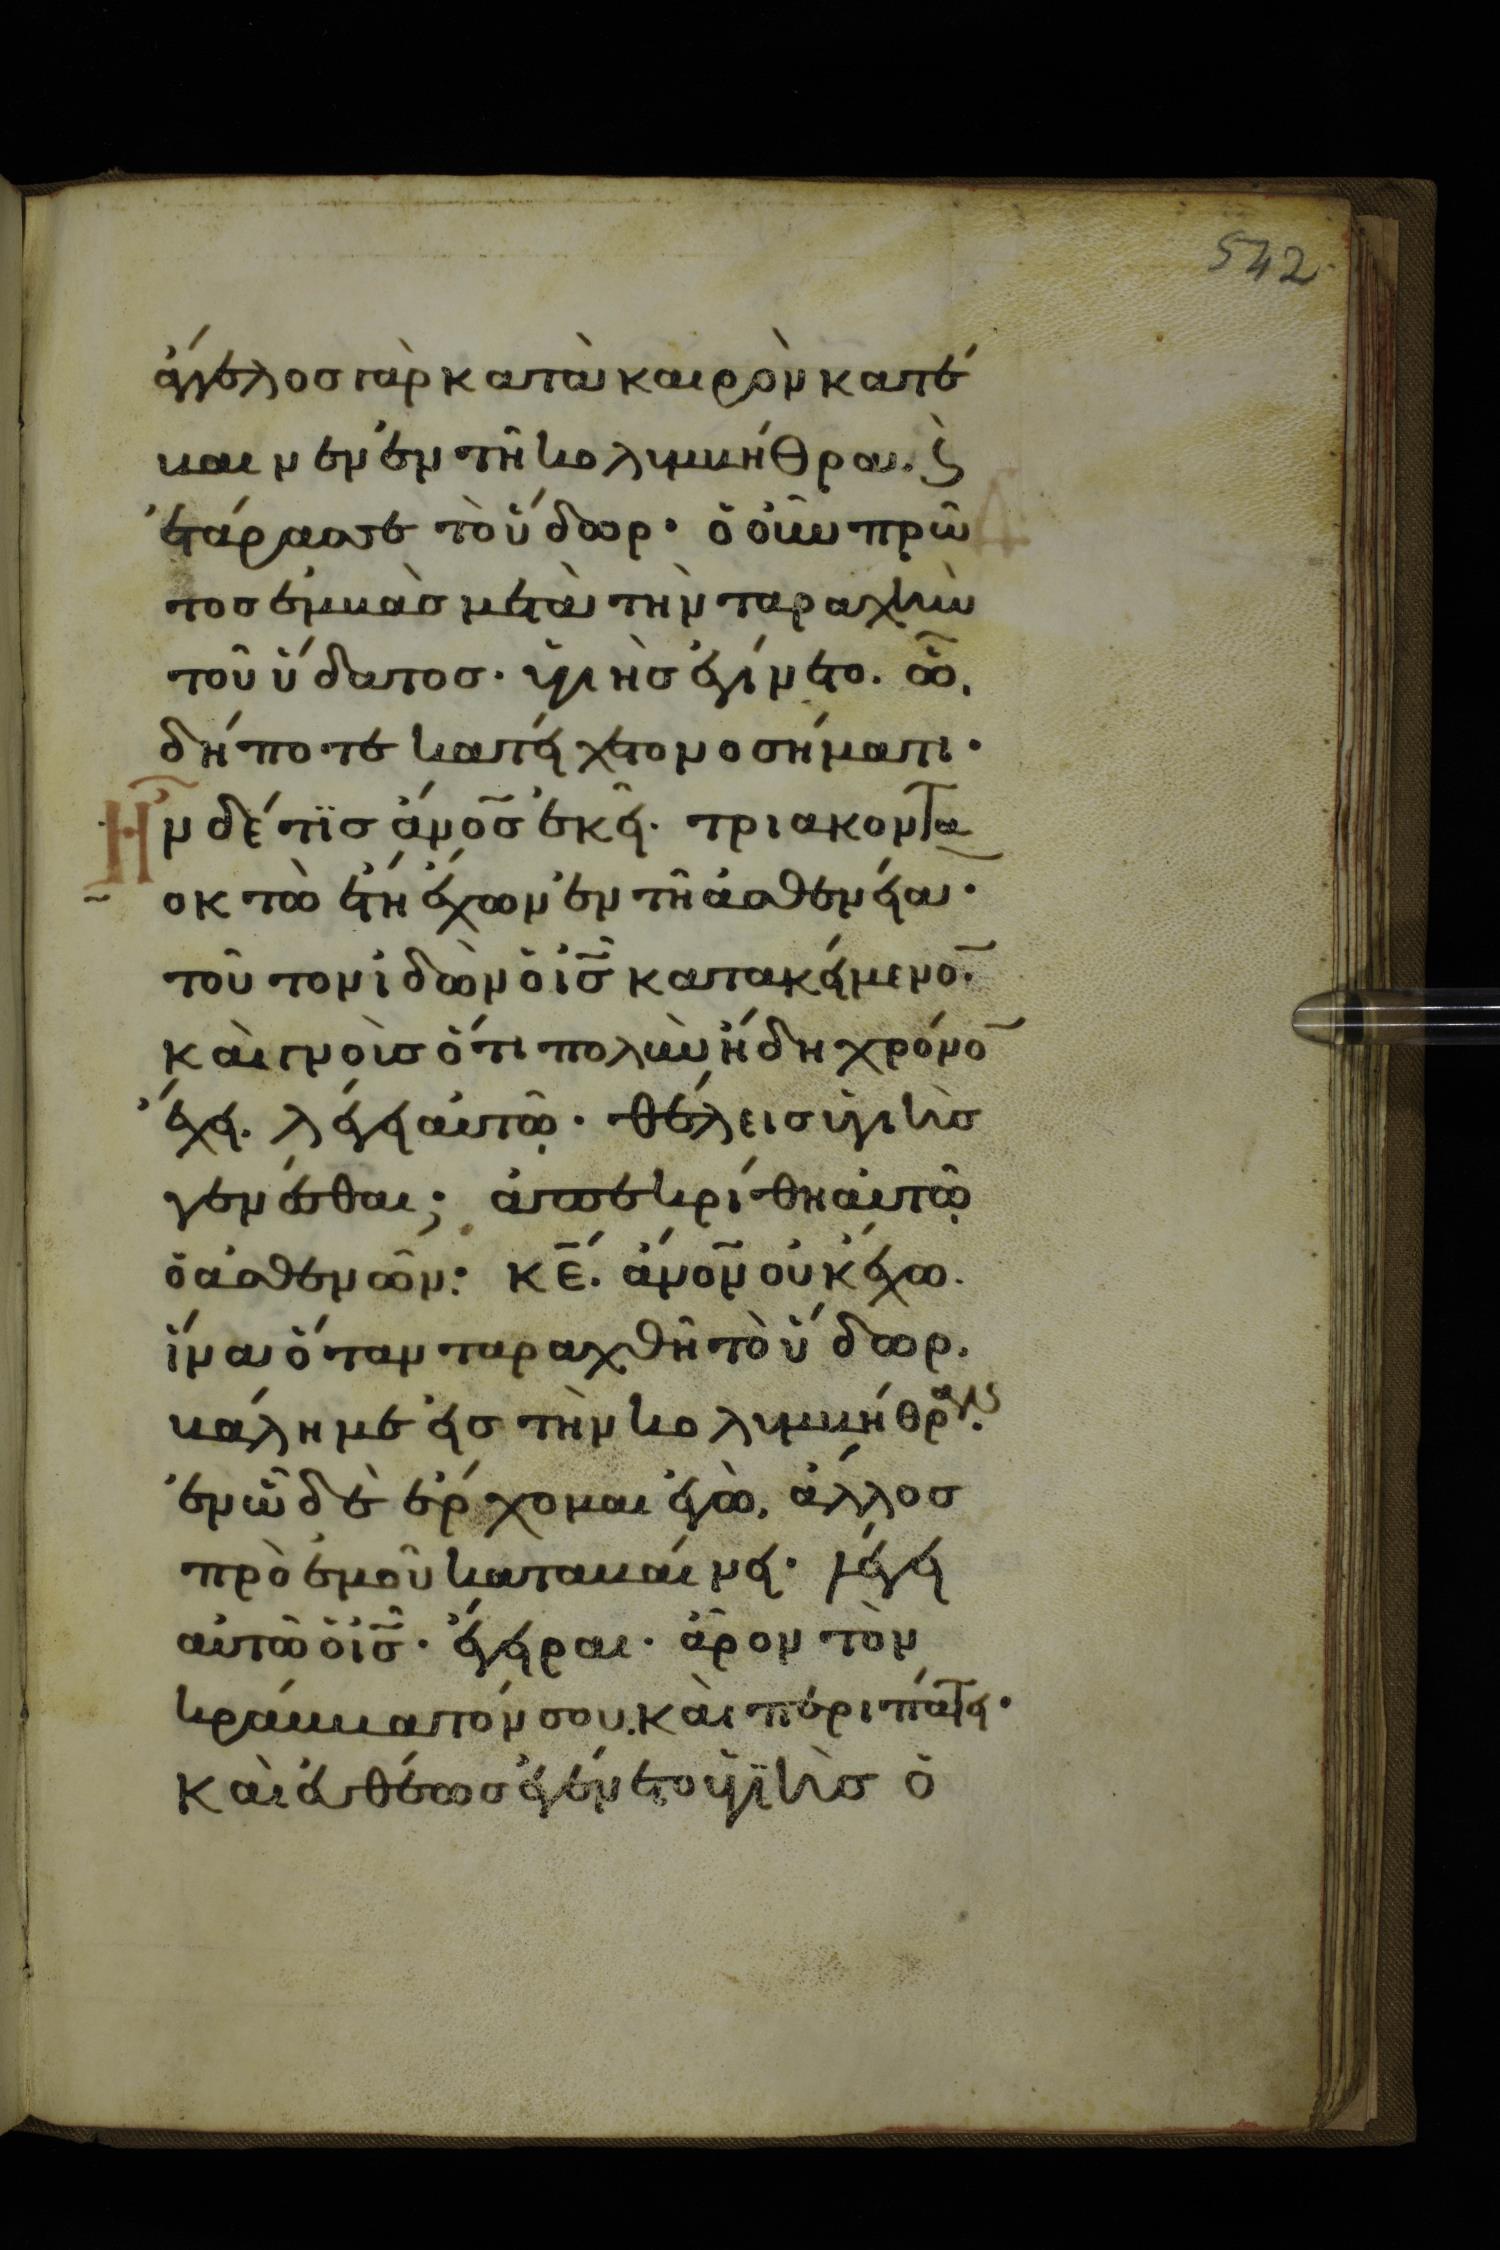 542
ἄγγελος γὰρ κατὰ καιρὸν κατέ
βαινεν ἐν τῆ κολυμβήθρα. ϗ
ἐτάρασσε τὸ ὕδωρ· ὁ οὖν πρῶ
τος ἐμβὰς μετὰ τὴν ταραχὴν
τοῦ ὕδατος· ὑγιὴς ἐγίνετο. ὧ
δήποτε κατείχετο νοσήματι·
Ἦν δέ τις ἄνος ἐκεῖ. τριακοντα
οκτὼ ἔτη ἔχων ἐν τῆ ἀσθενεία·
τοῦτον ἰδὼν ὁ ις κατακείμενο
καὶ γνοὺς ὅτι πολὺν ἤδη χρόνο
ἔχει. λέγει αὐτῷ· θέλεις ὑγιὴς
γενέσθαι; ἀπεκρίθη αὐτῷ
ὁ ἀσθενῶν: κε. ἄνον οὐκ ἔχω.
ἵνα ὅταν ταραχθῆ τὸ ὕδωρ.
βάλη με εἰς τὴν κολυμβήθραν.
ἐν ῶ δὲ ἔρχομαι ἐγὼ, ἄλλος
πρὸ ἐμοῦ καταβαίνει· λέγει
αὐτῶ ὁ ις· ἔγειραι· ἆρον τὸν
κράββατόν σου. καὶ περιπάτει·
καὶ εὐθέως ἐγένετο ὑγιὴς ὁ